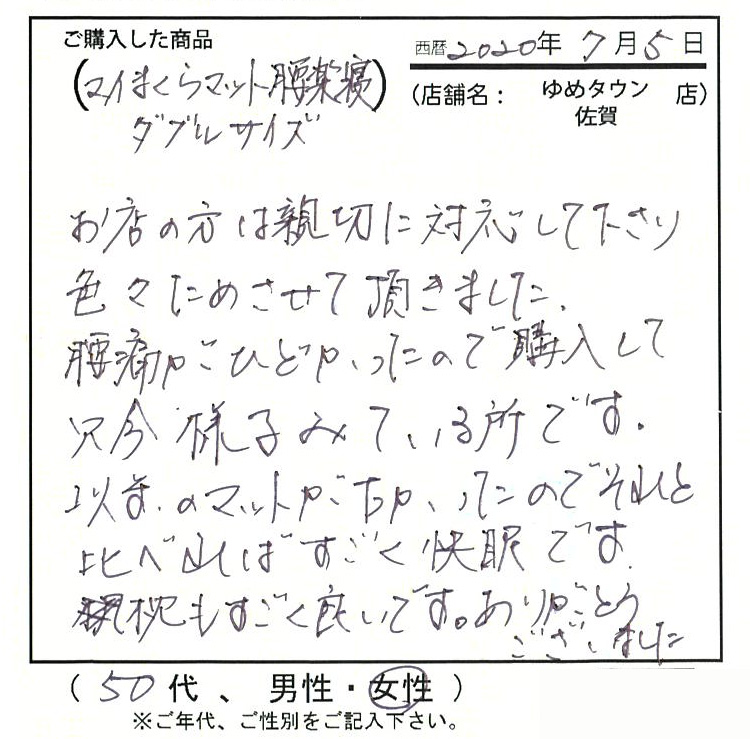 ご購入した商品
西暦2020年 7月5日
(マイまくらマット腰楽寝)
ダブルサイズ
(店舗名: ゆめタウン 佐賀 店)
お店の方は親切に対応して下さり
色々ためさせて頂きました。
腰痛がひどかったので購入して
只今様子みている所です。
以前のマットがだったのでそれと
比べればすごく快眠です。
枕もすごく良いです。ありがとう
ございました
(50代、男性・女性)
※ご年代、ご性別をご記入下さい。